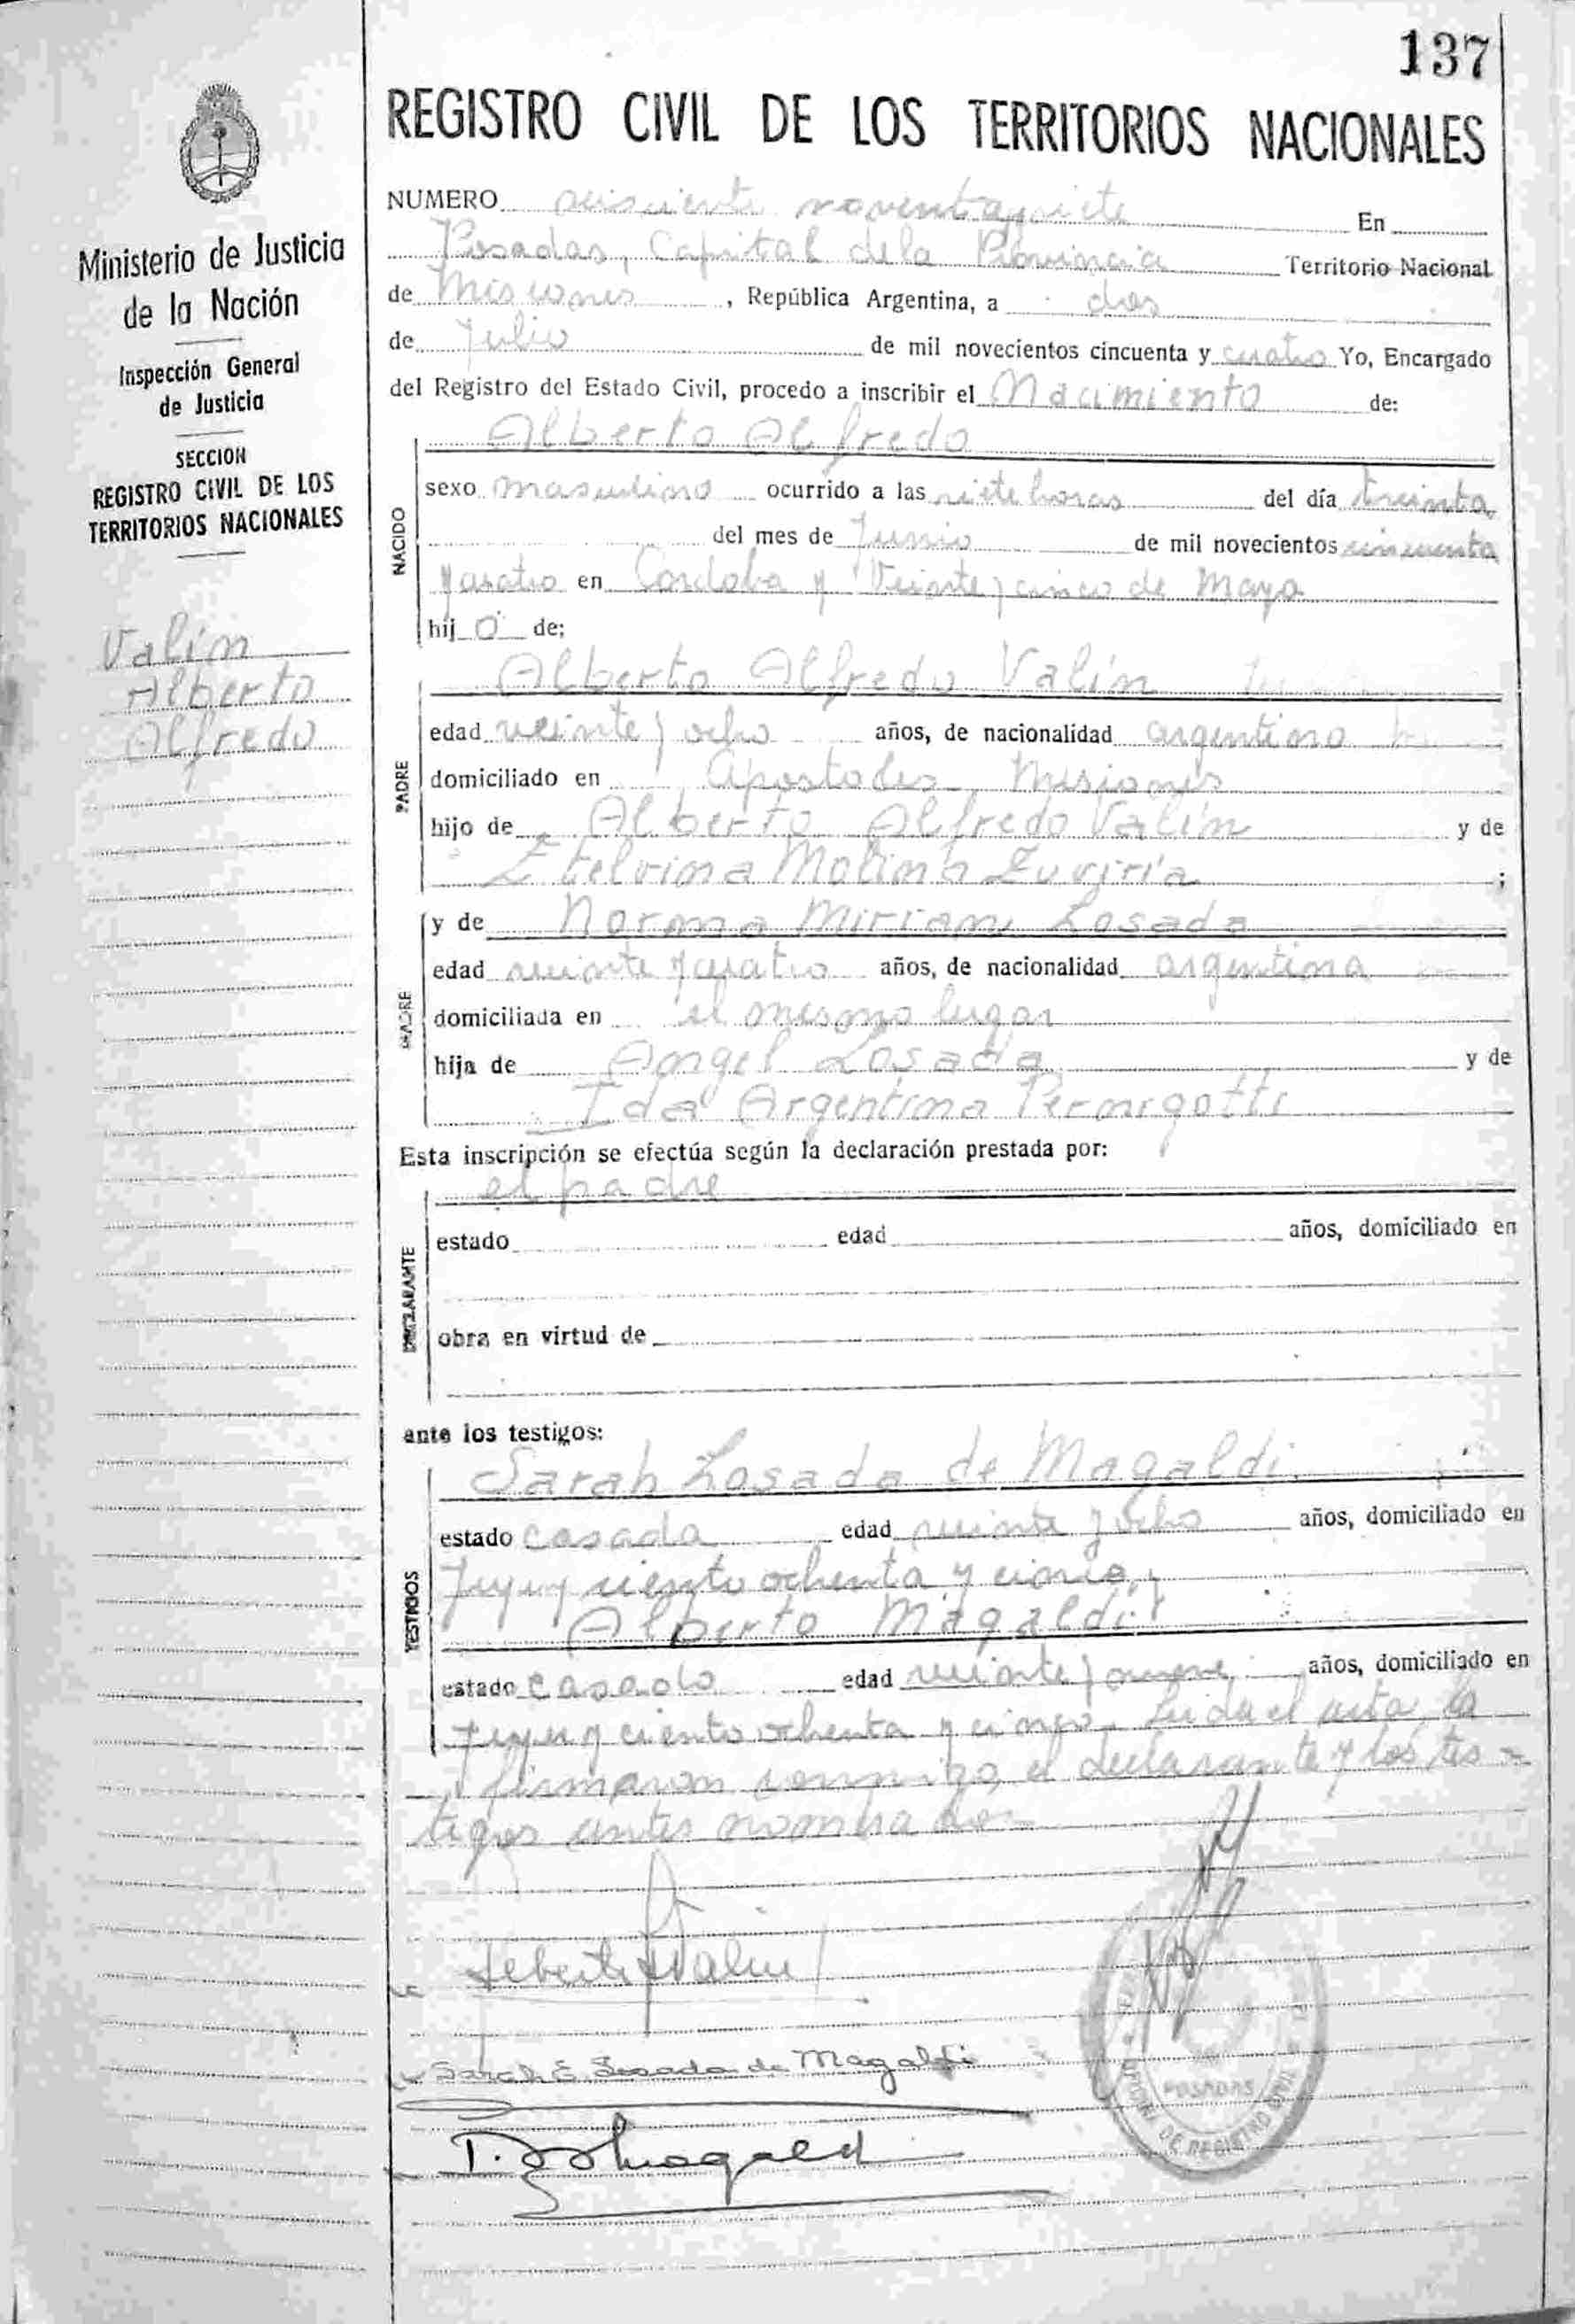 137
REGISTRO CIVIL DE LOS TERRITORIOS NACIONALES
Ministerio de Justicia
de la Nación
Inspección General
de Justicia
SECCION
REGISTRO CIVIL DE LOS
TERRITORIOS NACIONALES
Valín
Alberto
Alfredo
NUMERO seiscientos noventa y siete En
Posadas, Capital de la Provincia Territorio Nacional
de Misiones, República Argentina, a dos
de Julio de mil novecientos cincuenta y cuatro Yo, Encargado
del Registro del Estado Civil, procedo a inscribir el Nacimiento de:
Alberto Alfredo
NACIDO
sexo masculino ocurrido a las siete horas del día treinta
del mes de Junio de mil novecientos cincuenta
y cuatro en Cordoba y Veinte y cinco de Mayo
hij o de:
Alberto Alfredo Valín
PADRE
edad veinte y ocho años, de nacionalidad argentino
domiciliado en Apostoles Misiones
hijo de Alberto Alfredo Valín y de
Etelvina Molina Zuviría ;
y de Norma Miriam Losada
MADRE
edad veinte y cuatro años, de nacionalidad argentina
domiciliada en el mismo lugar
hija de Angel Losada y de
Ida Argentina Pernigotti
Esta inscripción se efectúa según la declaración prestada por:
el padre
DECLARANTE
estado edad años, domiciliado en
obra en virtud de
ante los testigos:
Sarah Losada de Magaldi
TESTIGOS
estado casada edad veinte y ocho años, domiciliado en
Jujuy ciento ochenta y cinco, y
Alberto Magaldi
estado casado edad veinte y nueve años, domiciliado en
Jujuy ciento ochenta y cinco. Leida el acta, la
firmaron conmigo, el declarante y los tes-
tigos antes nombrados-
Alberto A Valin
Sarah E Losada de Magaldi
POSADAS
DE REGISTRO CIVIL